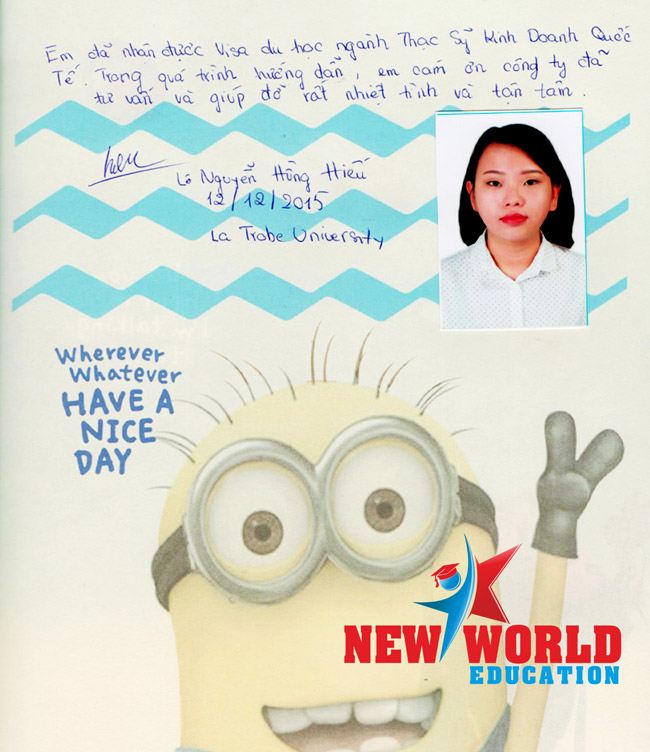 Em đã nhận được Visa du học ngành Thạc Sỹ Kinh Doanh Quốc
Tế. Trong quá trình hướng dẫn, em cám ơn công ty đã
tư vấn và giúp đỡ rất nhiệt tình và tận tâm.
Lê Nguyễn Hồng Hiếu
12/12/2015
La Trobe University
Wherever
Whatever
HAVE A
NICE
DAY
NEW WORLD
EDUCATION